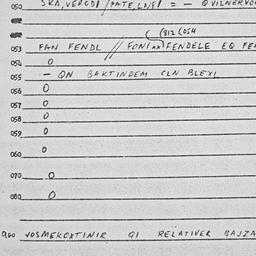 050 SKA, VERODI / PATE, LNEI = - QVILNERVO
(812 (054
053 FAN FENDL // FONI AX FENDELE EQ FE
054 0
055 - QN BAKTINDEM CLN BLEXI
056 0
057 0
058 0
059 0
060 0
070 0
080 0
900 VOSMEKOXTINIR QI RELATIVER BAJZA